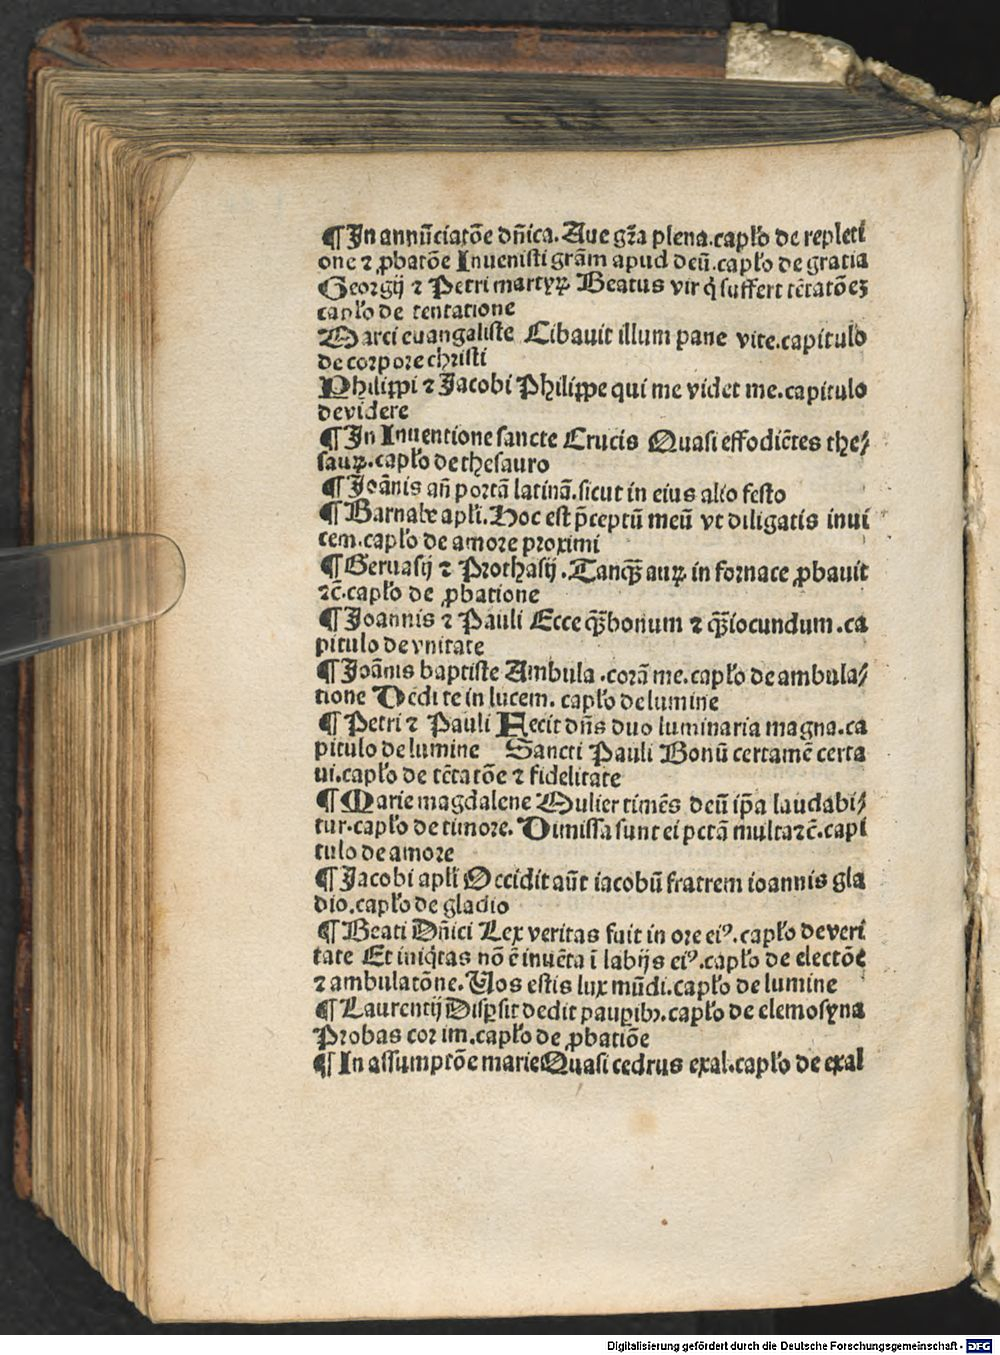 ¶ In annūciatōe dn̄ica. Aue gr̄a plena.capl̓o de repleti
one ⁊ ꝓbatōe Inuenisti grām apud deū.capl̓o de gratia
Georgij ⁊ Petri martyꝝ Beatus vir q̇ suffert tētatōeꝫ
capl̓o de tentatione
Marci euangaliste Cibauit illum pane vite.capitulo
de corpore christi
Philippi ⁊ Jacobi Philippe qui me videt me.capitulo
de videre
¶ In Inuentione sancte Crucis Quasi effodiētes the⸗
sauꝝ.capl̓o de thesauro
¶ Joānis an̄ portā latinā.sicut in eius alio festo
¶ Barnabe apl̓i.Hoc est p̄ceptū meū vt diligatis inui
cem.capl̓o de amore proximi
¶ Geruasij ⁊ Prothasij.Tanqꝫ̄ auꝝ in fornace ꝓbauit
⁊c̄.capl̓o de ꝓbatione
¶ Joannis ⁊ Pauli Ecce qꝫ̄ bonum ⁊ qꝫ̄ iocundum.ca
pitulo de vnitate
¶ Joānis baptiste Ambula .corā me.capl̓o de ambula⸗
tione Dedi te in lucem. capl̓o de lumine
¶ Petri ⁊ Pauli Fecit dn̄s duo luminaria magna.ca
pitulo de lumine Sancti Pauli Bonū certamē certa
ui.capl̓o de tētatōe ⁊ fidelitate
¶ Marie magdalene Mulier timēs deū ip̄a laudabi⸗
tur.capl̓o de timore. Dimissa sunt ei pctā multa ⁊c̄.capi
tulo de amore
¶ Jacobi apl̓i Occidit aūt iacobū fratrem ioannis gla
dio.capl̓o de gladio
¶ Beati Dn̄ici Lex veritas fuit in ore eiꝰ.capl̓o de veri
tate Et iniq̇tas nō ē inuēta ī labijs eiꝰ.capl̓o de electōe
⁊ ambulatōne. Uos estis lux mūdi.capl̓o de lumine
¶ Laurentij Disꝑsit dedit pauꝑibꝫ.capl̓o de elemosyna
Probas cor im.capl̓o de ꝓbatiōe
¶ In assumptōe marie Quasi cedrus exal.capl̓o de exal
Digitalisierung gefördert durch die Deutsche Forschungsgemeinschaft - DFG